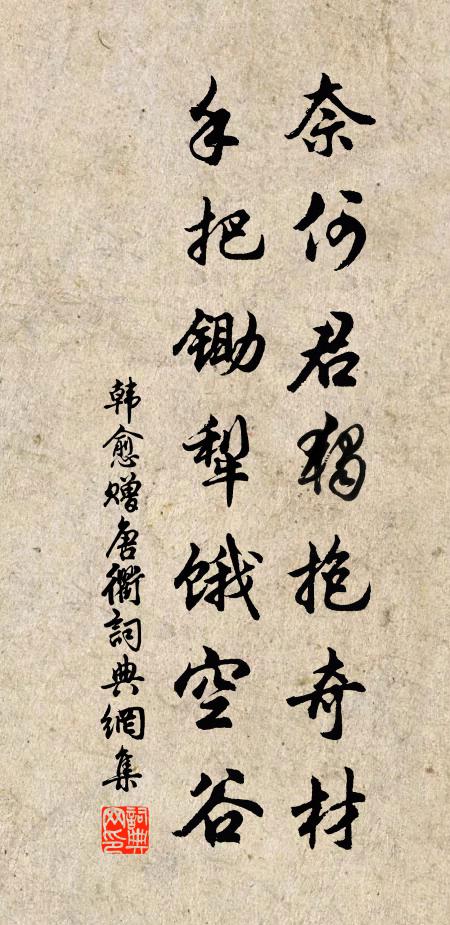 奈何君獨抱奇材
手把鋤犂餓空谷
韓愈贈唐衢詞典網集
詞典网印